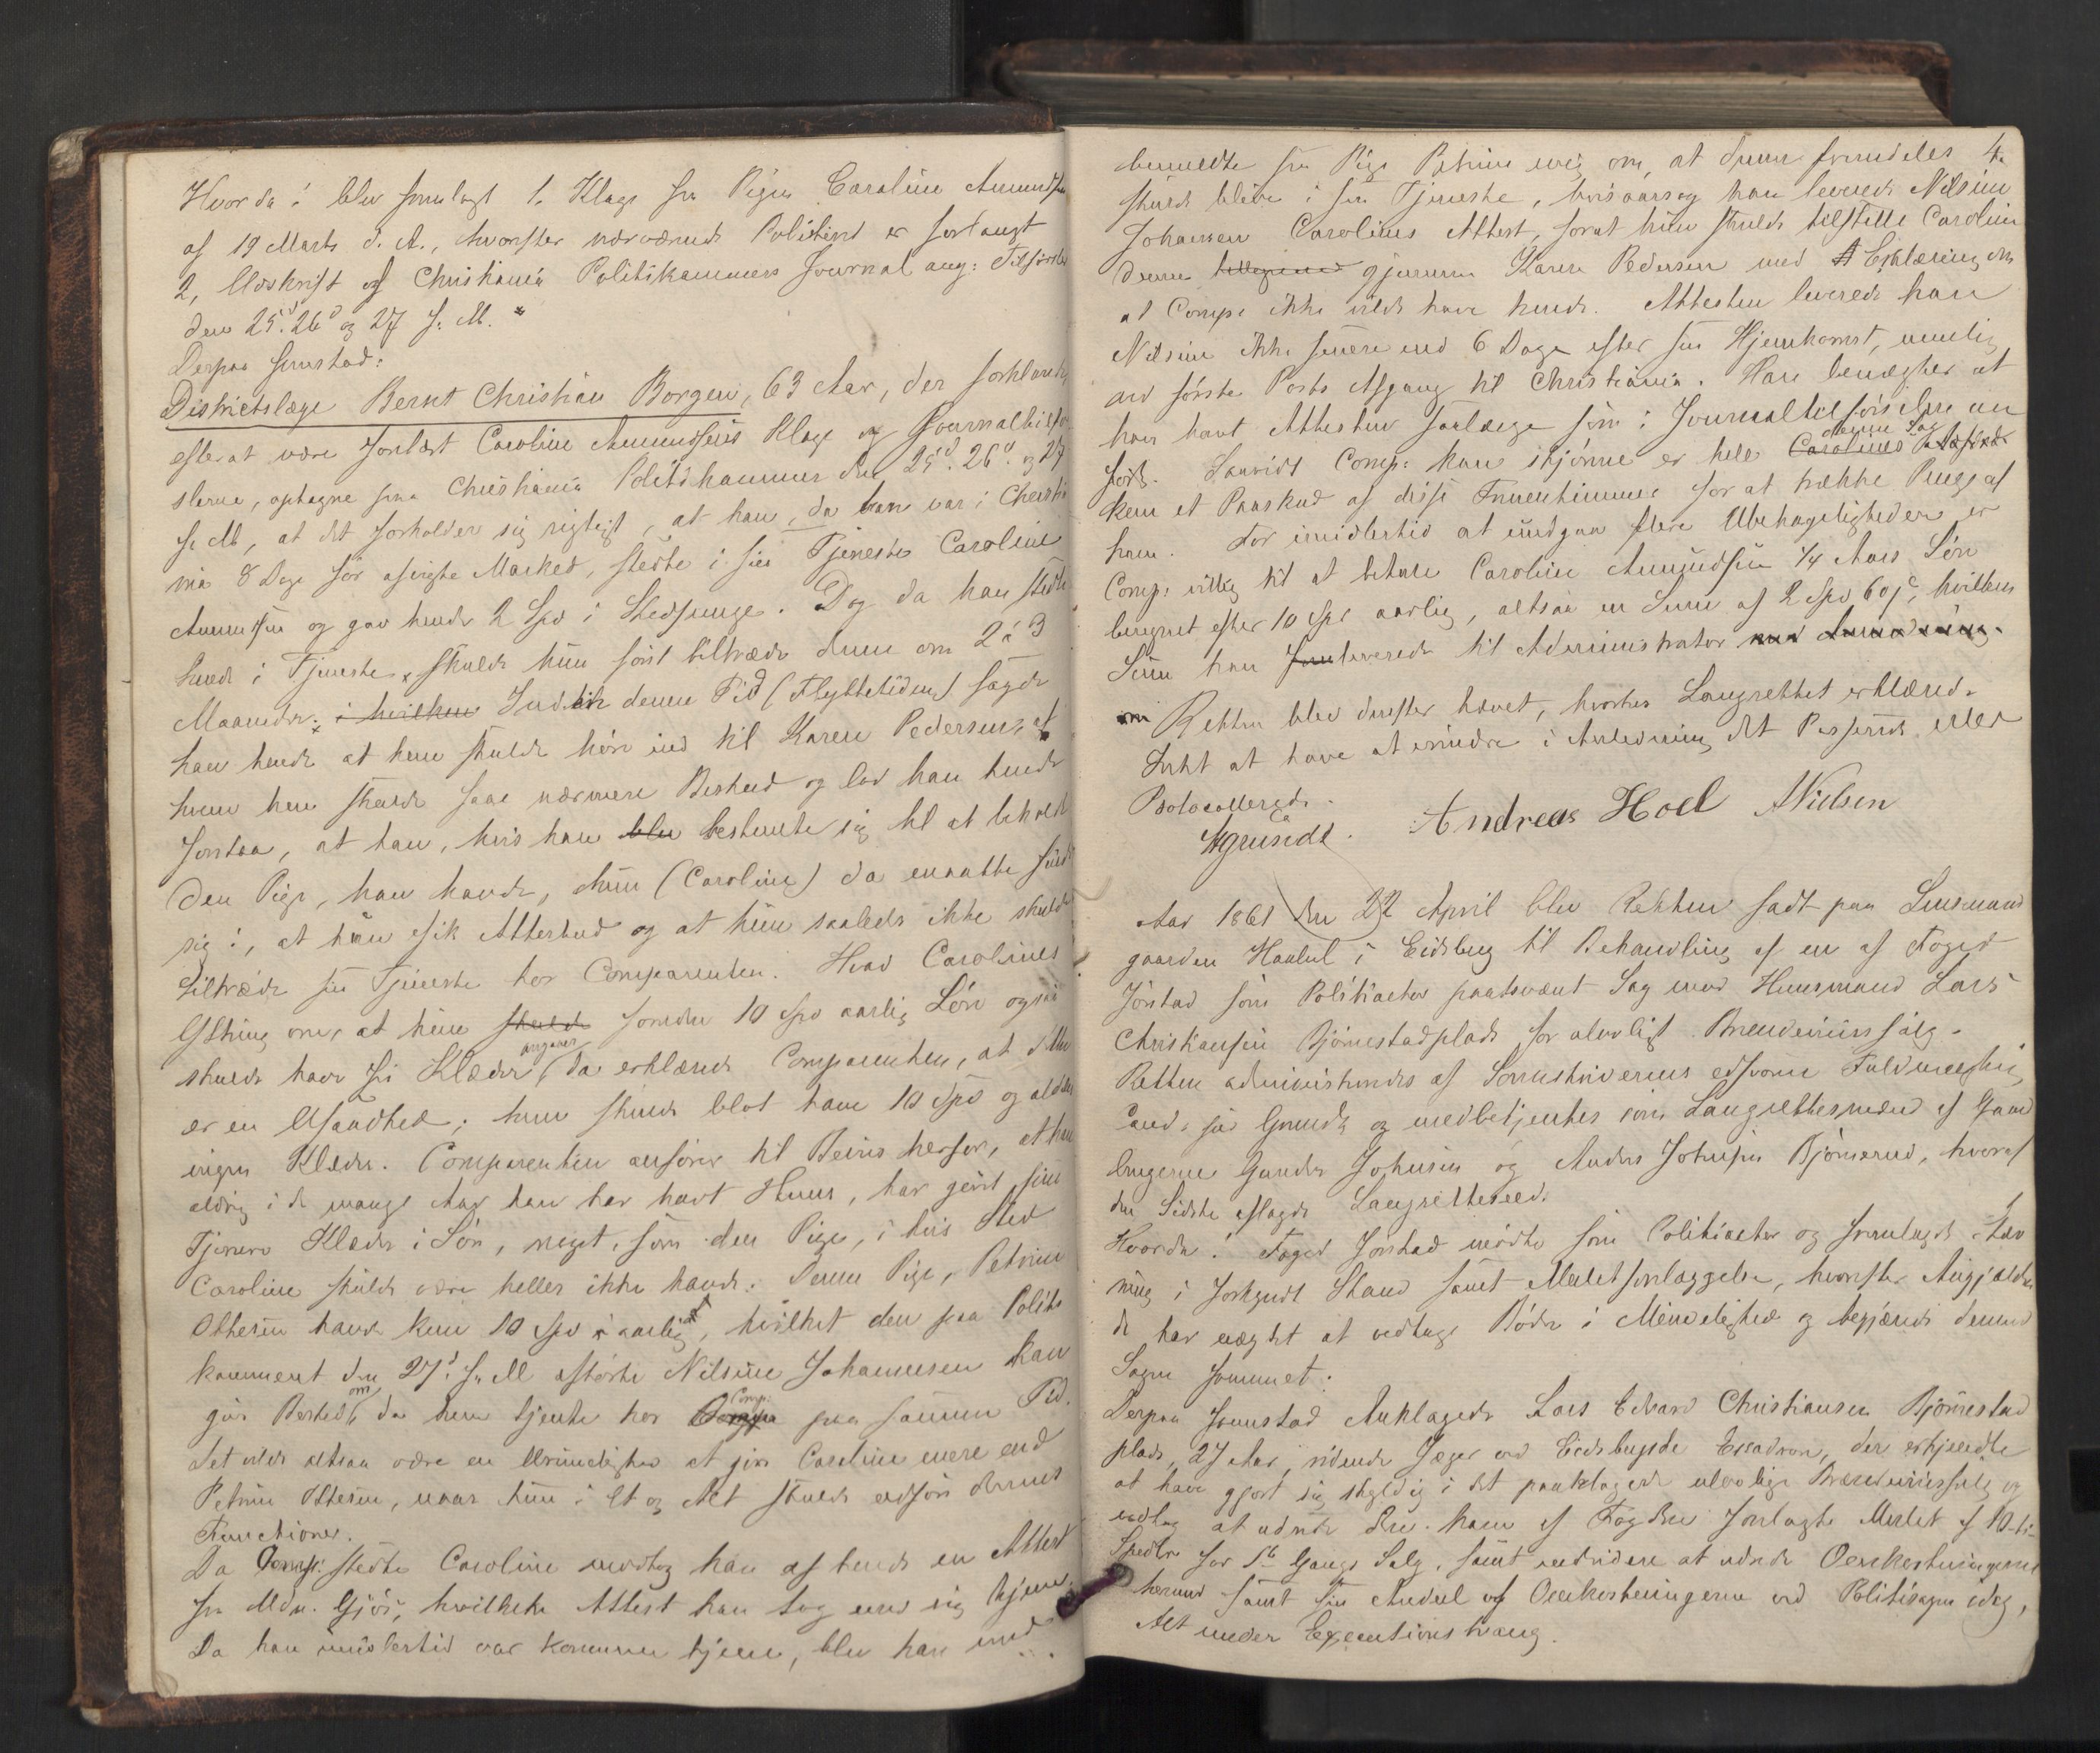 Hvorda: blev fremlagt 1, Klage fra Pigen Caroline Amundsen
af 19 Marts d. A., hvorefter nærværende Politiret er forlangt
2, Udskrift af Christiania Politikammers Journal ang: Tilførsler
den 25d. 26d og 27 f. M.
Derpaa fremstod:
Districtslæge Bernt Christian Borgen, 63 Aar, der forklarede
efterat være forelæst Caroline Amundsens Klage og Journaltilfør-
slerne, optagne paa Christiania Politikammer den 25d. 26d. og 27
f. M., at det forholder sig rigtigt, at han, da han var i Christia
nia 8 Dage før afvigte Marked, fæste i sin Tjeneste Caroline
Amundsen og gav hende 2 Spd i Fæstepenge. Dog da han fæste
hende i Tjeneste, skulde hun først tiltræde denne om 2 á 3
Maaneder. i hvilken Indtil denne Tid (Flyttetiden) sagde
han hende at hun skulde høre ind til Karen Pedersen, af
hvem hun skulde faae nærmere Besked og lod han hende
forstaa, at han, hvis han blev bestemte sig til at beholde
den Pige, han havde, hun (Caroline) da maatte finde
sig i, at hun fik Afterbud og at hun saaledes ikke skulde
tiltræde sin Tjeneste hos Comparenten. Hvad Carolines
Yttring om, at hun skulde foruden 10 Spd aarlig Løn ogsaa
skulde have fri Klæder angaaer, da erklærede Comparenten, at dette
er en Usandhed; hun skulde blot have 10 Spd og aldeles
ingen Klæder. Comparenten anfører til Beviis herfor, at han
aldrig i de mange Aar han har havt Huus, har givet sine
Tjenere Klæder i Løn, noget, som den Pige, i hvis Sted
Caroline skulde være heller ikke havde. Denne Pige, Petrine
Ottesen havde kun 10 Spd aarlig, hvilket den paa Politi
kammeret den 27d. f. M. afhørte Nilsine Johannesen kan
give Besked om, da hun tjente hos Comp: paa samme Tid.
Det vilde altsaa være en Urimelighed at give Caroline mere end
Petrine Ottesen, naar hun i Et og Alt skulde udføre dennes
Functioner.
Da Comp: fæste Caroline modtog han af hende en Attest
fra Mdm. Gjøs, hvilken Attest han tog med sig hjem.
Da han imidlertid var kommen hjem, blev han med
4.
bemeldte sin Pige Petrine enig om, at denne fremdeles
skulde blive i sin Tjeneste, hvisaarsag han leverede Nilsine
Johansen Carolines Attest, forat hun skulde tilstille Caroline
denne gjennem Karen Pedersen med Erklæring om
at Comp: ikke vilde have hende. Attesten leverede han
Nilsine ikke senere end 6 Dage efter sin Hjemkomst, nemlig
ved første Posts Afgang til Christiania. Han benægter at
han havt Attesten saalænge som i Journaltilførslerne an
ført. Saavidt Comp: kan skjønne er hele denne Sag
kun et Paaskud af disse Fruentimmer for at trække Penge af
ham. For imidlertid at undgaa flere Ubehageligheder er
Comp: villig til at betale Caroline Amundsen 1/4 Aars Løn
beregnet efter 10 Spd aarlig, altsaa en Sum af 2 Spd 60 s, hvilken
Sum han leverede til Administrator
Retten blev derefter hævet, hvorhos Laugrettet erklærede
Intet at have at erindre i Anledning det Passerede eller
Protocollerede.
Andreas Hoel ANielsen
Aar 1861 den 22 April blev Retten sadt paa Lensmand
gaarden Haalul i Eidsberg til Behandling af en af Foged
Jørstad som Politiactor paatsævnt Sag mod Huusmand Lars
Christiansen Bjørnestadplads for ulovligt Brændeviinssalg.
Retten administreredes af Sorenskriverens edsvorne Fuldmægtig
Cand. jur. Grundt og medbetjentes som Laugrettesmænd af Gaard
brugerne Gunder Johnsen og Anders Johnsen Bjørnerud, hvoraf
den Sidste aflagde Laugretteseed.
Hvorda: Foged Jørstad mødte som Politiactor og fremlagde Stæv
ning i forkyndt Stand samt Muletforlæggelse, hvorefter Angjælden
de har nægtet at vedtage Bøder i Mindelighed og begjærede derved
Sagen fremmet.
Derpaa fremstod Anklagede Lars Edvard Christiansen Bjørnestad
plads, 27 Aar, ridende Jæger ved Eidsbergske Escadron, der erkjendte
at have gjort sig skyldig i det paaklagede ulovlige Brændeviinssalg og
vedtog at udrede den ham af Fogden forelagte Mulct af 10-ti-
Spedlr for 1ste Gangs Salg, samt endvidere at udrede Omkostningerne
herved samt sin Andeel af Omkostningerne ved Politisagen idag,
Alt under Executionstvang.